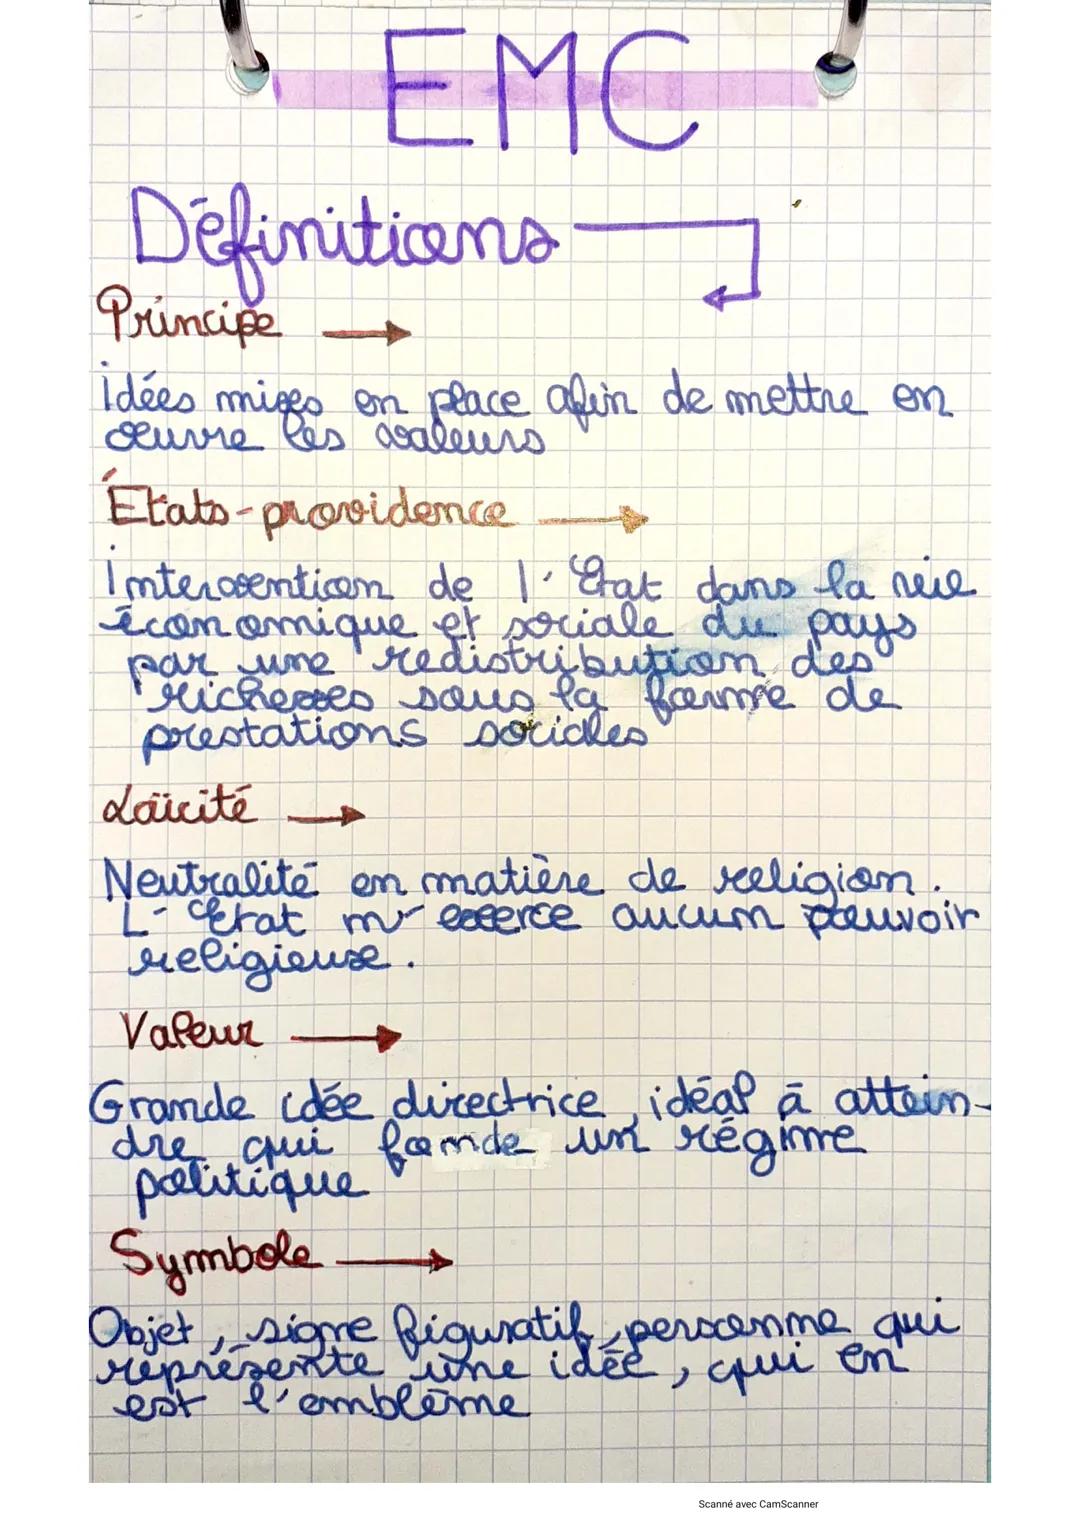 EMC
Définitions
Principe
idées mises en place afin de mettre en
œuvre les valeurs
États-providence
Intervention de l'État dans la vie
économique et sociale du pays
par une redistribution des
richesses sous la forme de
prestations sociales
Laïcité
Neutralité en matière de religion.
L'État n'exerce aucun pouvoir
religieuse.
Valeur
Grande idée directrice, idéal à attein-
dre qui fonde un régime
politique
Symbole
Objet, signe figuratif, personne qui
représente une idée, qui en
est l'emblème
Scanné avec CamScanner